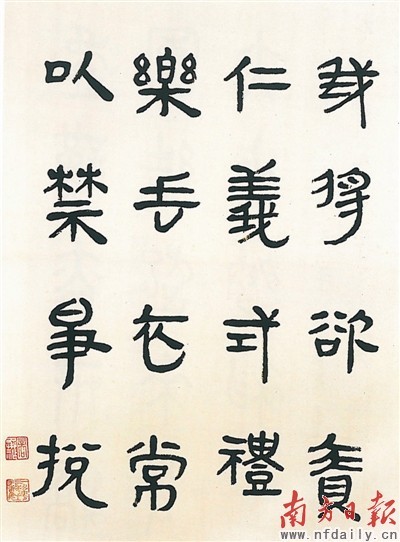 我將欲責
仁義式禮
樂垂衣常
以禁爭挩
南方日报
www.nfdaily.cn